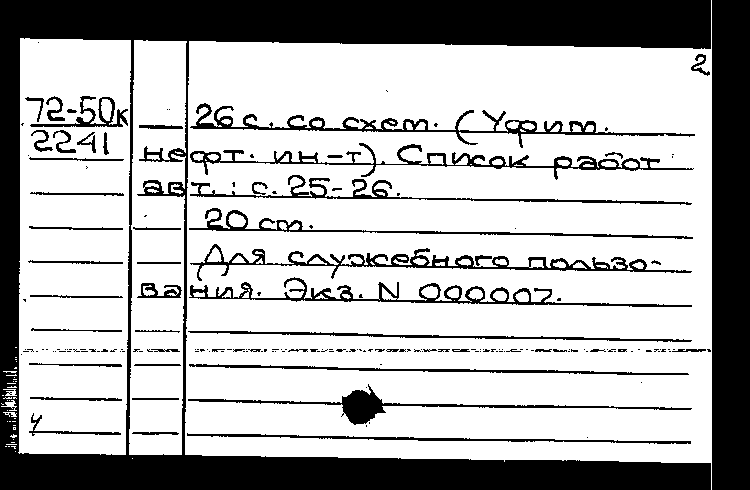 2
72-50к
2241
26 с. со схем. (Уфим.
нефт. ин-т). Список работ
авт. : с. 25-26.
20 см.
Для служебного пользо-
вания. Экз. N 000007.